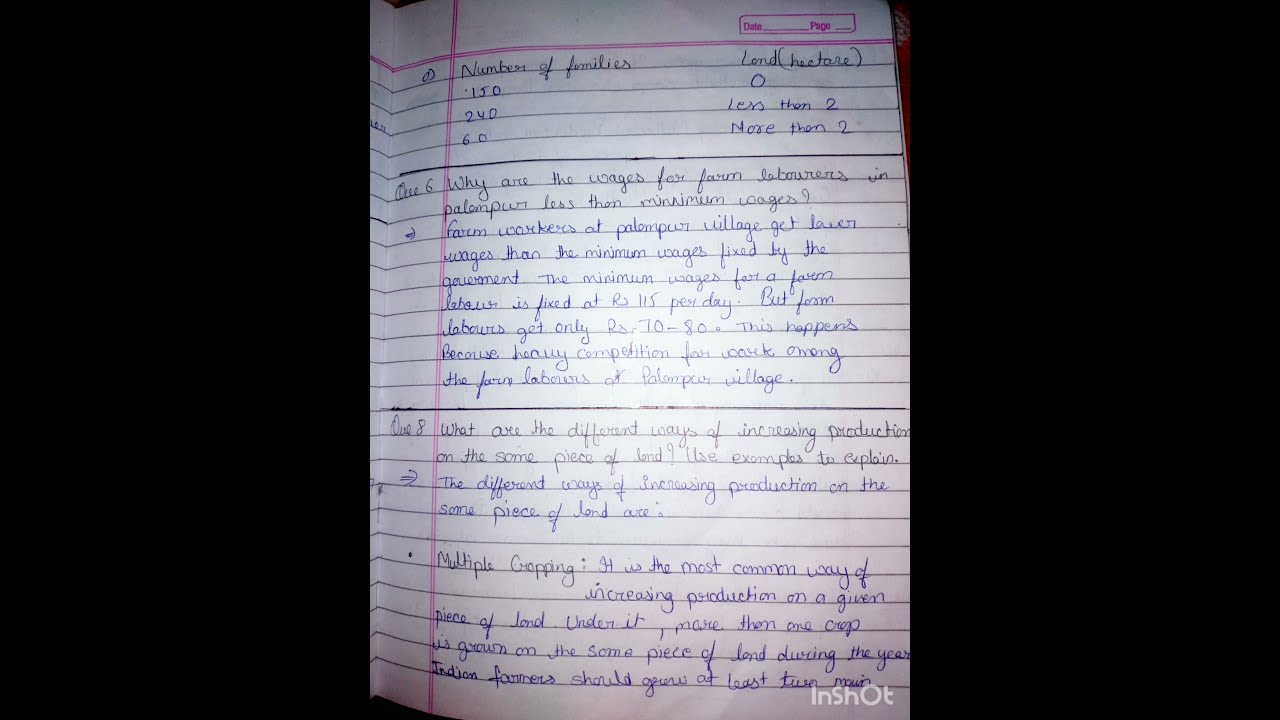 Date Page
Number of families Land(hectare)
150 0
240 Less than 2
60 More than 2
Que 6 Why are the wages for farm labourers in
palampur less than minnimum wages?
⇒ Farm workers at palampur village get lawer
wages than the minimum wages fixed by the
gouerment. The minimum wages for a farm
labour is fixed at Rs 115 per day. But farm
labours get only Rs. 70-80. This happens
Because heavy competition for work among
the farm labours at Palampur village.
Que 8 What are the different ways of increasing production
on the same piece of land? Use examples to explain.
⇒ The different ways of increasing production on the
same piece of land are:
• Multiple Cropping: It is the most common way of
increasing production on a given
piece of land. Under it, more than one crop
is grown on the same piece of land during the year
Indian farmers should grow at least two main
InShOt